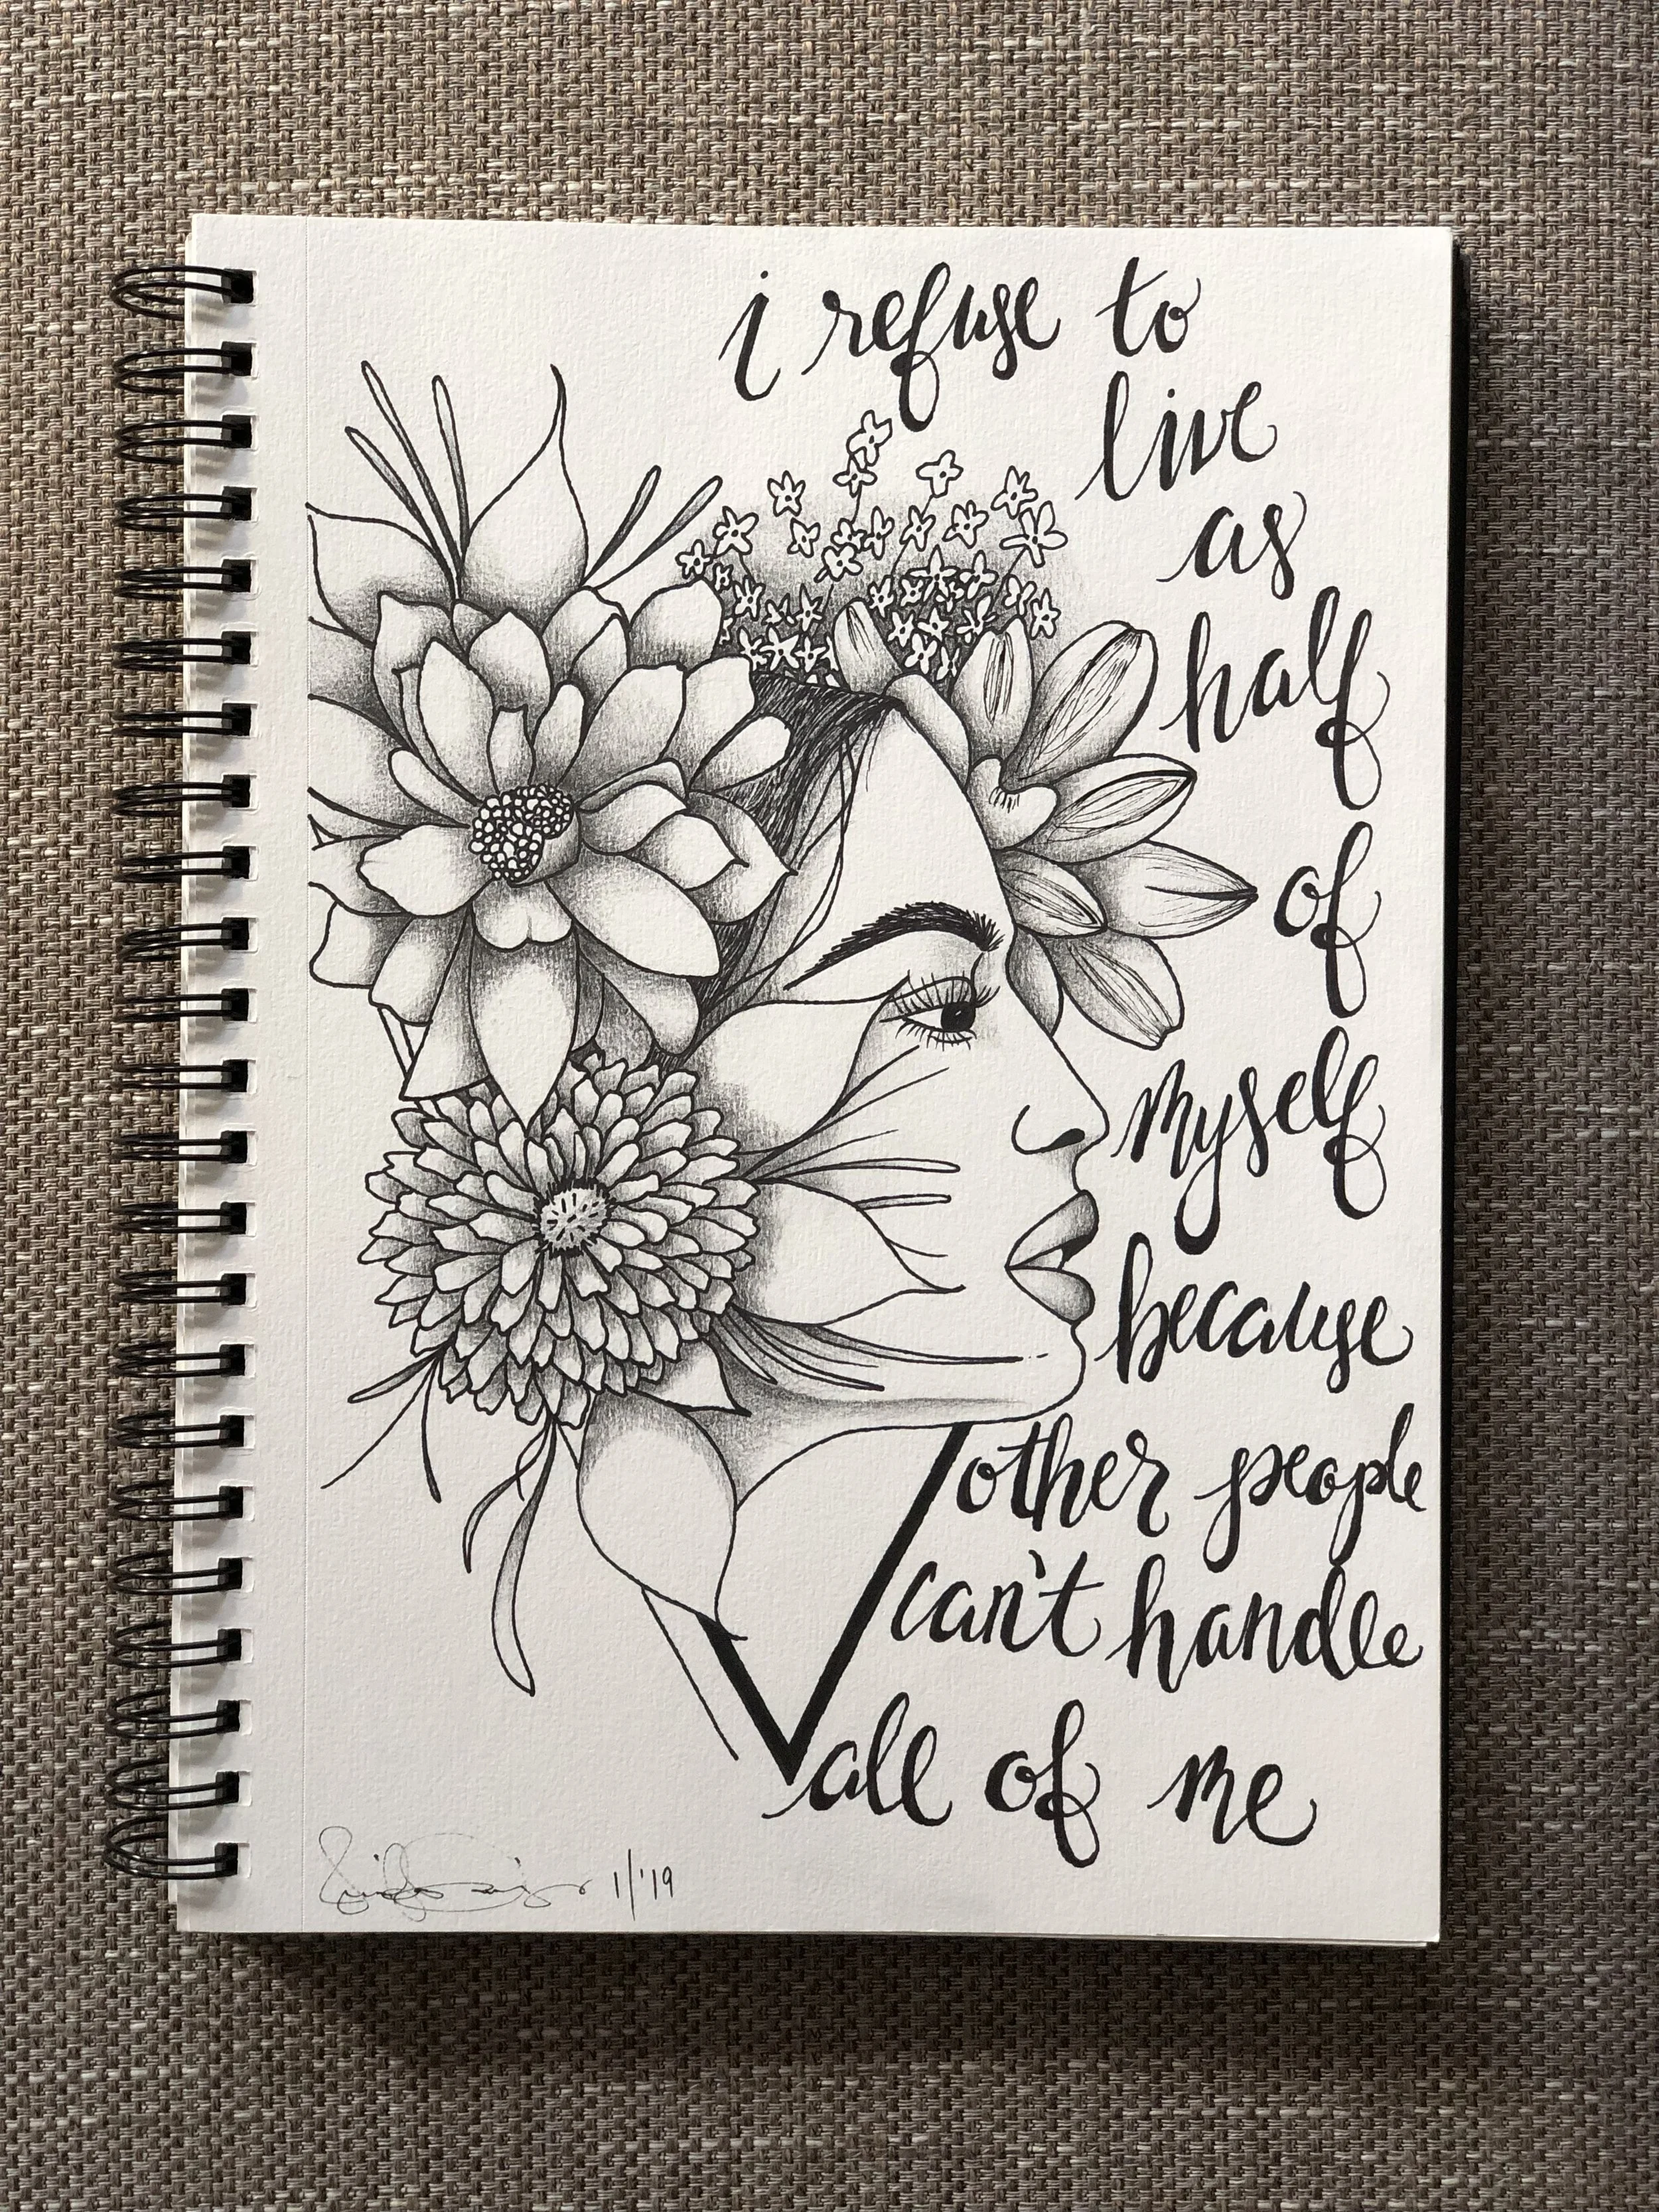 i refuse to
live
as
half
of
myself
because
other people
can't handle
all of me
1/'19